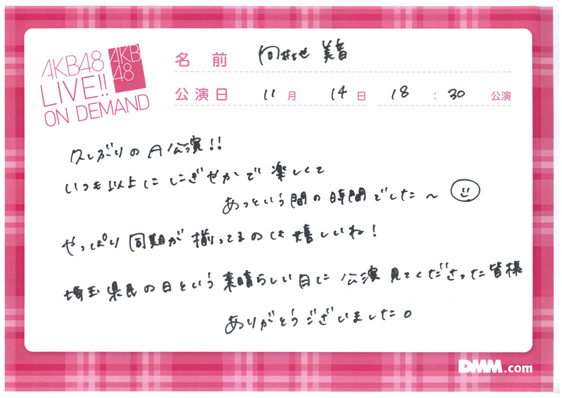 AKB48
LIVE!!
ON DEMAND
AKB
48
名前 向井地 美音
公演日 11月 14日 18:30 公演
久しぶりのA公演!!
いつも以上ににぎやかで楽しくて
あっという間の時間でした〜
やっぱり同期が揃ってるのは嬉しいね!
埼玉県民の日という素晴らしい日に公演見てくださった皆様
ありがとうございました。
DMM.com